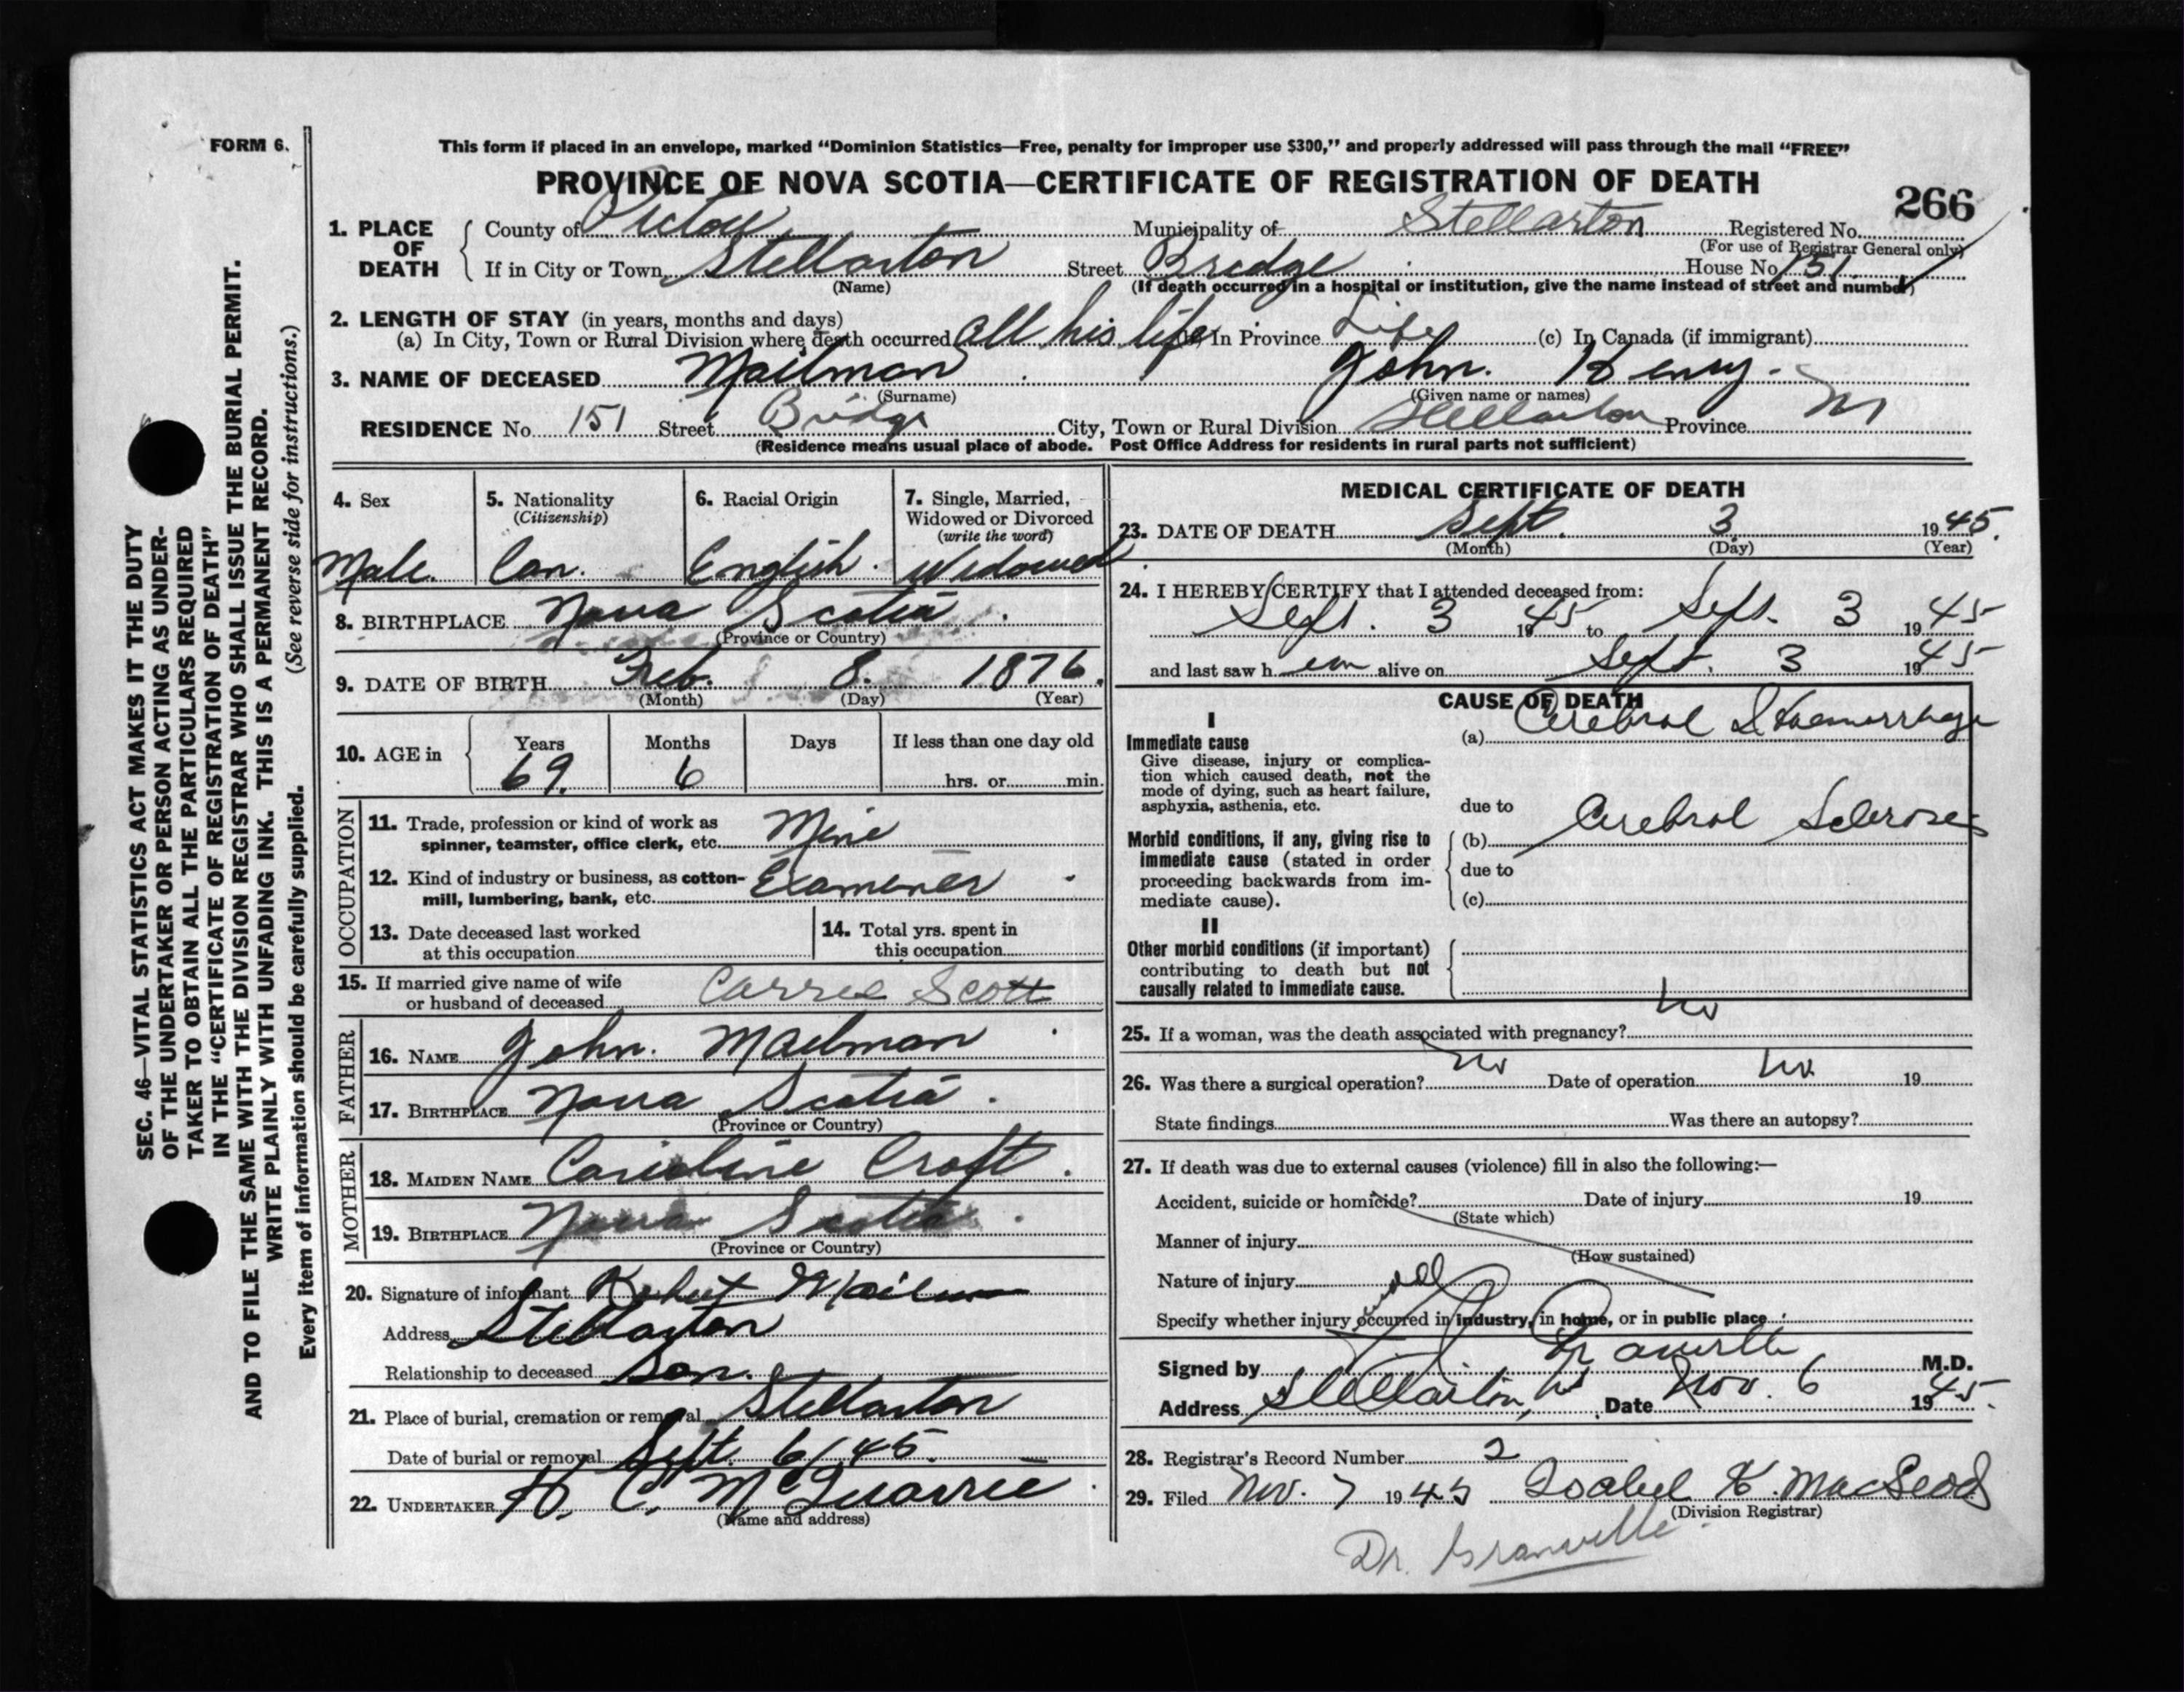 FORM 6.
This form if placed in an envelope, marked “Dominion Statistics—Free, penalty for improper use $300,” and properly addressed will pass through the mail “FREE”
PROVINCE OF NOVA SCOTIA—CERTIFICATE OF REGISTRATION OF DEATH
266
1. PLACE OF DEATH County of Pictou Municipality of Stellarton Registered No.
(For use of Registrar General only)
If in City or Town Stellarton Street Bredge House No 151
(Name) (If death occurred in a hospital or institution, give the name instead of street and number)
2. LENGTH OF STAY (in years, months and days)
(a) In City, Town or Rural Division where death occurred all his life In Province Life (c) In Canada (if immigrant)
3. NAME OF DECEASED Mailman John. Henry.
(Surname) (Given name or names)
RESIDENCE No. 151 Street Bridge City, Town or Rural Division Stellarton Province
(Residence means usual place of abode. Post Office Address for residents in rural parts not sufficient)
4. Sex 5. Nationality (Citizenship) 6. Racial Origin 7. Single, Married, Widowed or Divorced (write the word)
Male. Can. English. Widowed
8. BIRTHPLACE Nova Scotia
(Province or Country)
9. DATE OF BIRTH Feb. 8. 1876.
(Month) (Day) (Year)
10. AGE in Years Months Days If less than one day old
69. 6 hrs. or min.
OCCUPATION
11. Trade, profession or kind of work as spinner, teamster, office clerk, etc. Mine
12. Kind of industry or business, as cotton-mill, lumbering, bank, etc. Examener
13. Date deceased last worked at this occupation
14. Total yrs. spent in this occupation
15. If married give name of wife or husband of deceased Carrie Scott
FATHER
16. NAME John. Mailman
17. BIRTHPLACE Nova Scotia.
(Province or Country)
MOTHER
18. MAIDEN NAME Caroline Croft.
19. BIRTHPLACE Nova Scotia.
(Province or Country)
20. Signature of informant Robert Mailman
Address Stellarton
Relationship to deceased Son.
21. Place of burial, cremation or removal Stellarton
Date of burial or removal Sept. 6/45.
22. UNDERTAKER H. C. McQuarrie
(Name and address)
MEDICAL CERTIFICATE OF DEATH
23. DATE OF DEATH Sept. 3 1945.
(Month) (Day) (Year)
24. I HEREBY CERTIFY that I attended deceased from:
Sept. 3 1945 to Sept. 3 1945
and last saw h im alive on Sept. 3 1945
CAUSE OF DEATH
I
Immediate cause
Give disease, injury or complication which caused death, not the mode of dying, such as heart failure, asphyxia, asthenia, etc.
(a) Cerebral Haemorrhage
due to
Morbid conditions, if any, giving rise to immediate cause (stated in order proceeding backwards from immediate cause).
(b) Cerebral Sclerosis
due to
(c)
II
Other morbid conditions (if important) contributing to death but not causally related to immediate cause.
25. If a woman, was the death associated with pregnancy? no
26. Was there a surgical operation? no Date of operation no 19
State findings Was there an autopsy?
27. If death was due to external causes (violence) fill in also the following:—
Accident, suicide or homicide? Date of injury 19
(State which)
Manner of injury
(How sustained)
Nature of injury
Specify whether injury occurred in industry, in home, or in public place
Signed by Granville M.D.
Address Stellarton, NS Date Nov. 6 1945.
28. Registrar's Record Number 2
29. Filed Nov. 7 1945 Isabel K. MacLeod
(Division Registrar)
Dr. Granville
SEC. 46—VITAL STATISTICS ACT MAKES IT THE DUTY
OF THE UNDERTAKER OR PERSON ACTING AS UNDER-
TAKER TO OBTAIN ALL THE PARTICULARS REQUIRED
IN THE “CERTIFICATE OF REGISTRATION OF DEATH”
AND TO FILE THE SAME WITH THE DIVISION REGISTRAR WHO SHALL ISSUE THE BURIAL PERMIT.
WRITE PLAINLY WITH UNFADING INK. THIS IS A PERMANENT RECORD.
Every item of information should be carefully supplied. (See reverse side for instructions.)